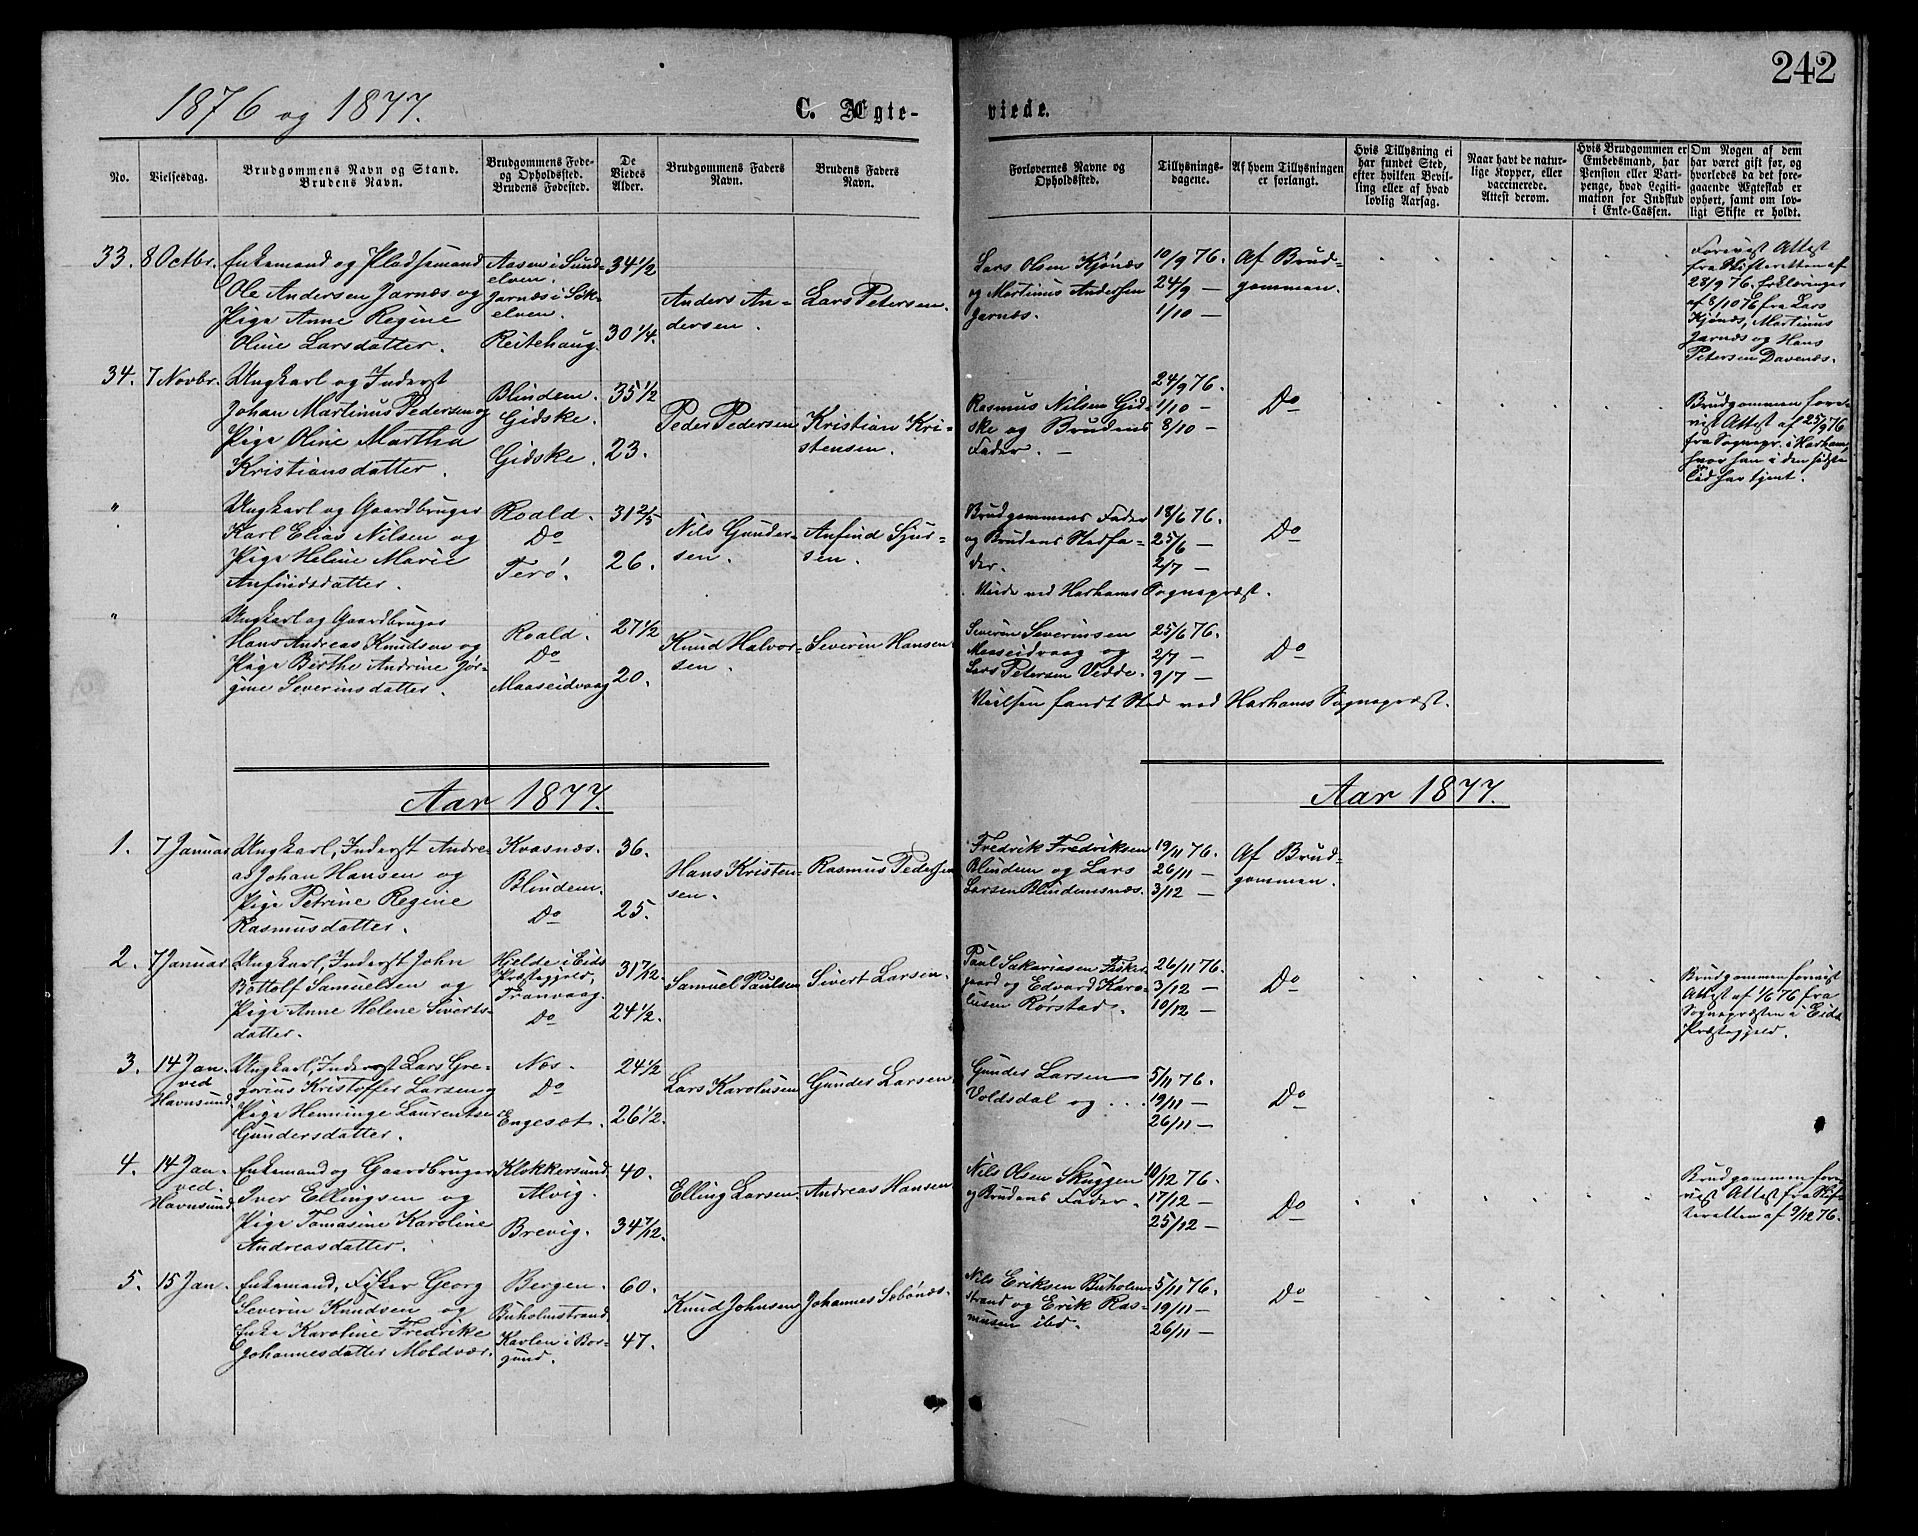 242
1876 og 1877.
C. Ægte-
viede.
No.
Vielsesdag.
Brudgommens Navn og Stand.
Brudens Navn.
Brudgommens Føde-
og Opholdssted.
Brudens Fødested.
De
Viedes
Alder.
Brudgommens Faders
Navn.
Brudens Faders
Navn.
Forlovernes Navne og
Opholdssted.
Tillysnings-
dagene.
Af hvem Tillysningen
er forlangt.
Hvis Tillysning ei
har fundet Sted,
efter hvilken Bevil-
ling eller af hvad
lovlig Aarsag.
Naar havt de natur-
lige Kopper, eller
vaccinerede.
Attest derom.
Hvis Brudgommen er
Embedsmand, har
Pension eller Vart-
penge, hvad Legiti-
mation for Indskud
i Enke-Cassen.
Om Nogen af dem
har været gift før, og
hvorledes da det fore-
gaaende Ægteskab er
ophørt, samt om lov-
ligt Skifte er holdt.
33.
8 Octbr.
Enkemand og Pladsemand
Ole Andersen Jarnæs og
Pige Anne Regine
Oline Larsdatter.
Aasen i Sund-
elven.
Jarnæs i Søk-
elven.
Reitehaug.
34 1/2
30 1/4.
Anders An-
dersen.
Lars Petersen.
Lars Olsen Kjønæs
og Martinus Andersen
Jarnæs.
10/9 76.
24/9 —
1/10 —
Af Brud-
gommen.
Forevist Attest
fra Skifteretten af
28/9 76. Erklæringer
af 8/10 76 fra Lars
Kjønæs, Martinus
Jarnæs og Hans
Petersen Davenæs.
34.
7 Novbr.
Ungkarl og Inderst
Johan Martinus Pedersen og
Pige Oline Martha
Kristiansdatter.
Blindem.
Gidske.
Gidske.
35 1/2
23.
Peder Pedersen
Kristian Kri-
stensen.
Rasmus Nilsen Gid-
ske og Brudens
Fader. —
24/9 76.
1/10 —
8/10 —
Do
Brudgommen fore-
vist Attest af 25/9 76
fra Sognepr. i Harham,
hvor han i den sidste
Tid har tjent.
"
Ungkarl og Gaardbruger
Karl Elias Nilsen og
Pige Heline Marie
Anfindsdatter.
Roald.
Do
Terø.
31 2/5
26.
Nils Gunder-
sen.
Anfind Sjur-
sen.
Brudgommens Fader
og Brudens Stedfa-
der.
18/6 76.
25/6 —
2/7 —
Do
Viede ved Harhams Sognepræst.
"
Ungkarl og Gaardbruger
Hans Andreas Knudsen og
Pige Berthe Andrine Jør-
gine Severinsdatter.
Roald.
Do
Maaseidvaag
27 1/2
20.
Knud Halvor-
sen.
Severin Hansen
Severin Severinsen
Maaseidvaag og
Lars Petersen Vedde.
25/6 76.
2/7 —
9/7 —
Do
Vielsen fandt Sted ved Harhams Sognepræst.
Aar 1877.
Aar 1877.
1.
7 Januar
Ungkarl, Inderst Andre-
as Johan Hansen og
Pige Petrine Regine
Rasmusdatter.
Kvasnæs.
Blindem.
Do
36.
25.
Hans Kristen-
sen.
Rasmus Pedersen
Fredrik Fredriksen
Blindem og Lars
Larsen Blindemsnæs.
19/11 76.
26/11 —
3/12 —
Af Brud-
gommen.
2.
7 Januar
Ungkarl, Inderst John
Bottolf Samuelsen og
Pige Anne Helene Siverts-
datter.
Hjelde i Eids
Præstegjeld,
Tranvaag.
Do
31 7/12.
24 1/2.
Samuel Paulsen
Sivert Larsen.
Paul Sakariasen Fisker-
gaard og Edvard Karo-
lusen Rørstad.
26/11 76.
3/12 —
10/12 —
Do
Brudgommen forevist
Attest af 1/6 76 fra
Sognepræsten i Eids
Præstegjeld.
3.
14 Jan.
ved
Havnsund.
Ungkarl, Inderst Lars Gre-
gorius Kristoffer Larsen og
Pige Henninge Laurentse
Gundersdatter.
Næs.
Do
Engesæt.
24 1/2
26 1/2.
Lars Karolusen
Gunder Larsen
Gunder Larsen
Voldsdal og ...
5/11 76.
19/11 —
26/11 —
Do
4.
14 Jan.
ved
Havnsund.
Enkemand og Gaardbruger
Iver Ellingsen og
Pige Tomasine Karoline
Andreasdatter.
Klokkersund.
Alvig.
Brevig.
40.
34 7/12.
Elling Larsen.
Andreas Hansen
Nils Olsen Skuggen
og Brudens Fader.
10/12 76.
17/12 —
25/12 —
Do
Brudgommen fore-
vist Attest fra Skif-
teretten af 9/12 76.
5.
15 Jan.
Enkemand, Fisker Georg
Severin Knudsen og
Enke Karoline Fredrike
Johannesdatter Moldvær.
Bergen.
Buholmstrand.
Kavlen i Bor-
gund.
60.
47.
Knud Johnsen
Johannes Sæbønæs.
Nils Eriksen Buholm-
strand og Erik Ras-
musen ibd.
5/11 76.
19/11 —
26/11 —
Do